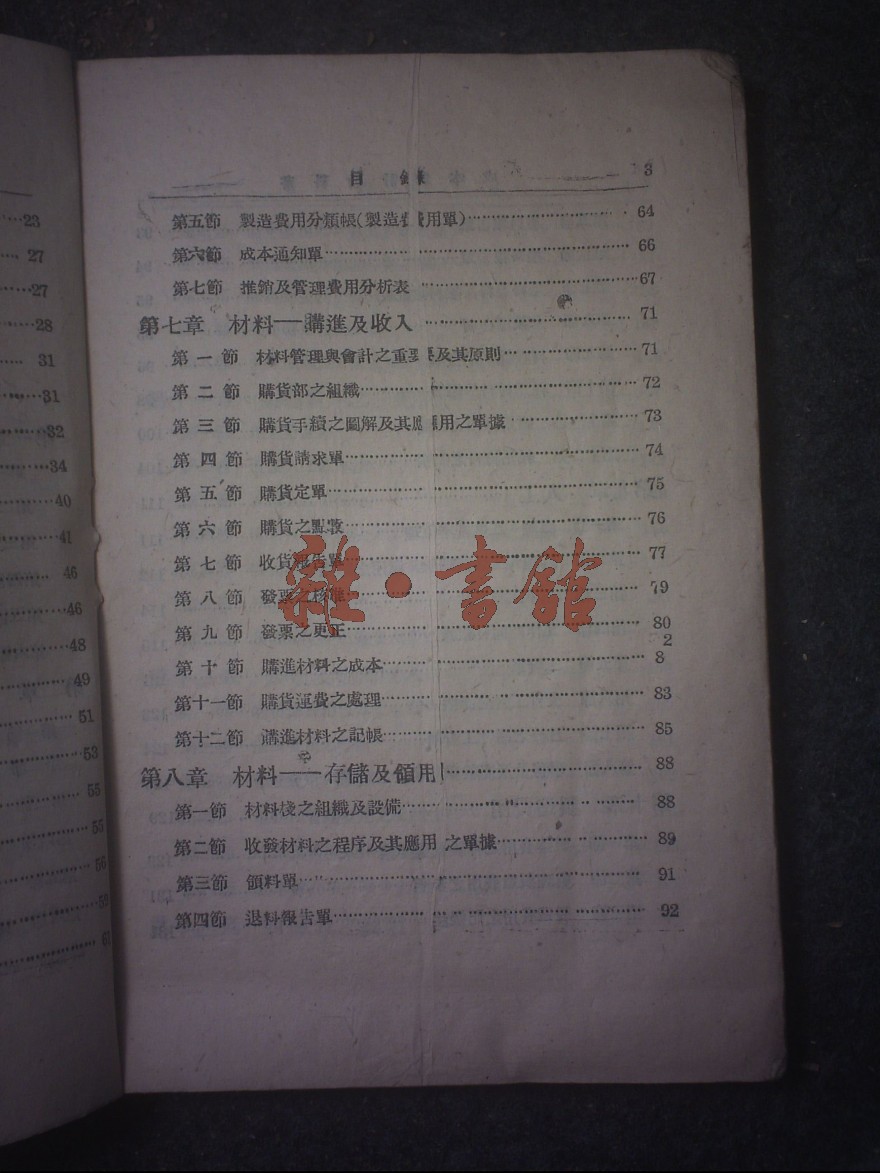 目錄 3
第五節 製造費用分類帳(製造費用單) 64
第六節 成本通知單 66
第七節 推銷及管理費用分析表 67
第七章 材料——購進及收入 71
第一節 材料管理與會計之重要及其原則 71
第二節 購貨部之組織 72
第三節 購貨手續之圖解及其應用之單據 73
第四節 購貨請求單 74
第五節 購貨定單 75
第六節 購貨之點收 76
第七節 收貨報告單 77
第八節 發票之核準 79
第九節 發票之更正 80
第十節 購進材料之成本 82
第十一節 購貨運費之處理 83
第十二節 購進材料之記帳 85
第八章 材料——存儲及領用 88
第一節 材料棧之組織及設備 88
第二節 收發材料之程序及其應用之單據 89
第三節 領料單 91
第四節 退料報告單 92
雜·書館
23
27
27
28
31
31
32
34
40
41
46
46
48
49
51
53
55
55
56
59